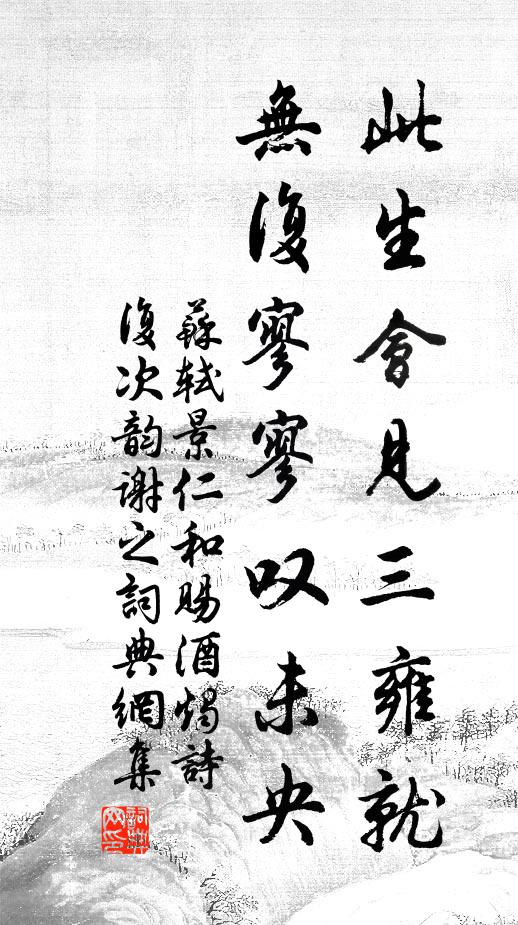 此生會見三雍就
無復寥寥叹未央
蘇軾景仁和賜酒燭詩
復次韵謝之詞典網集